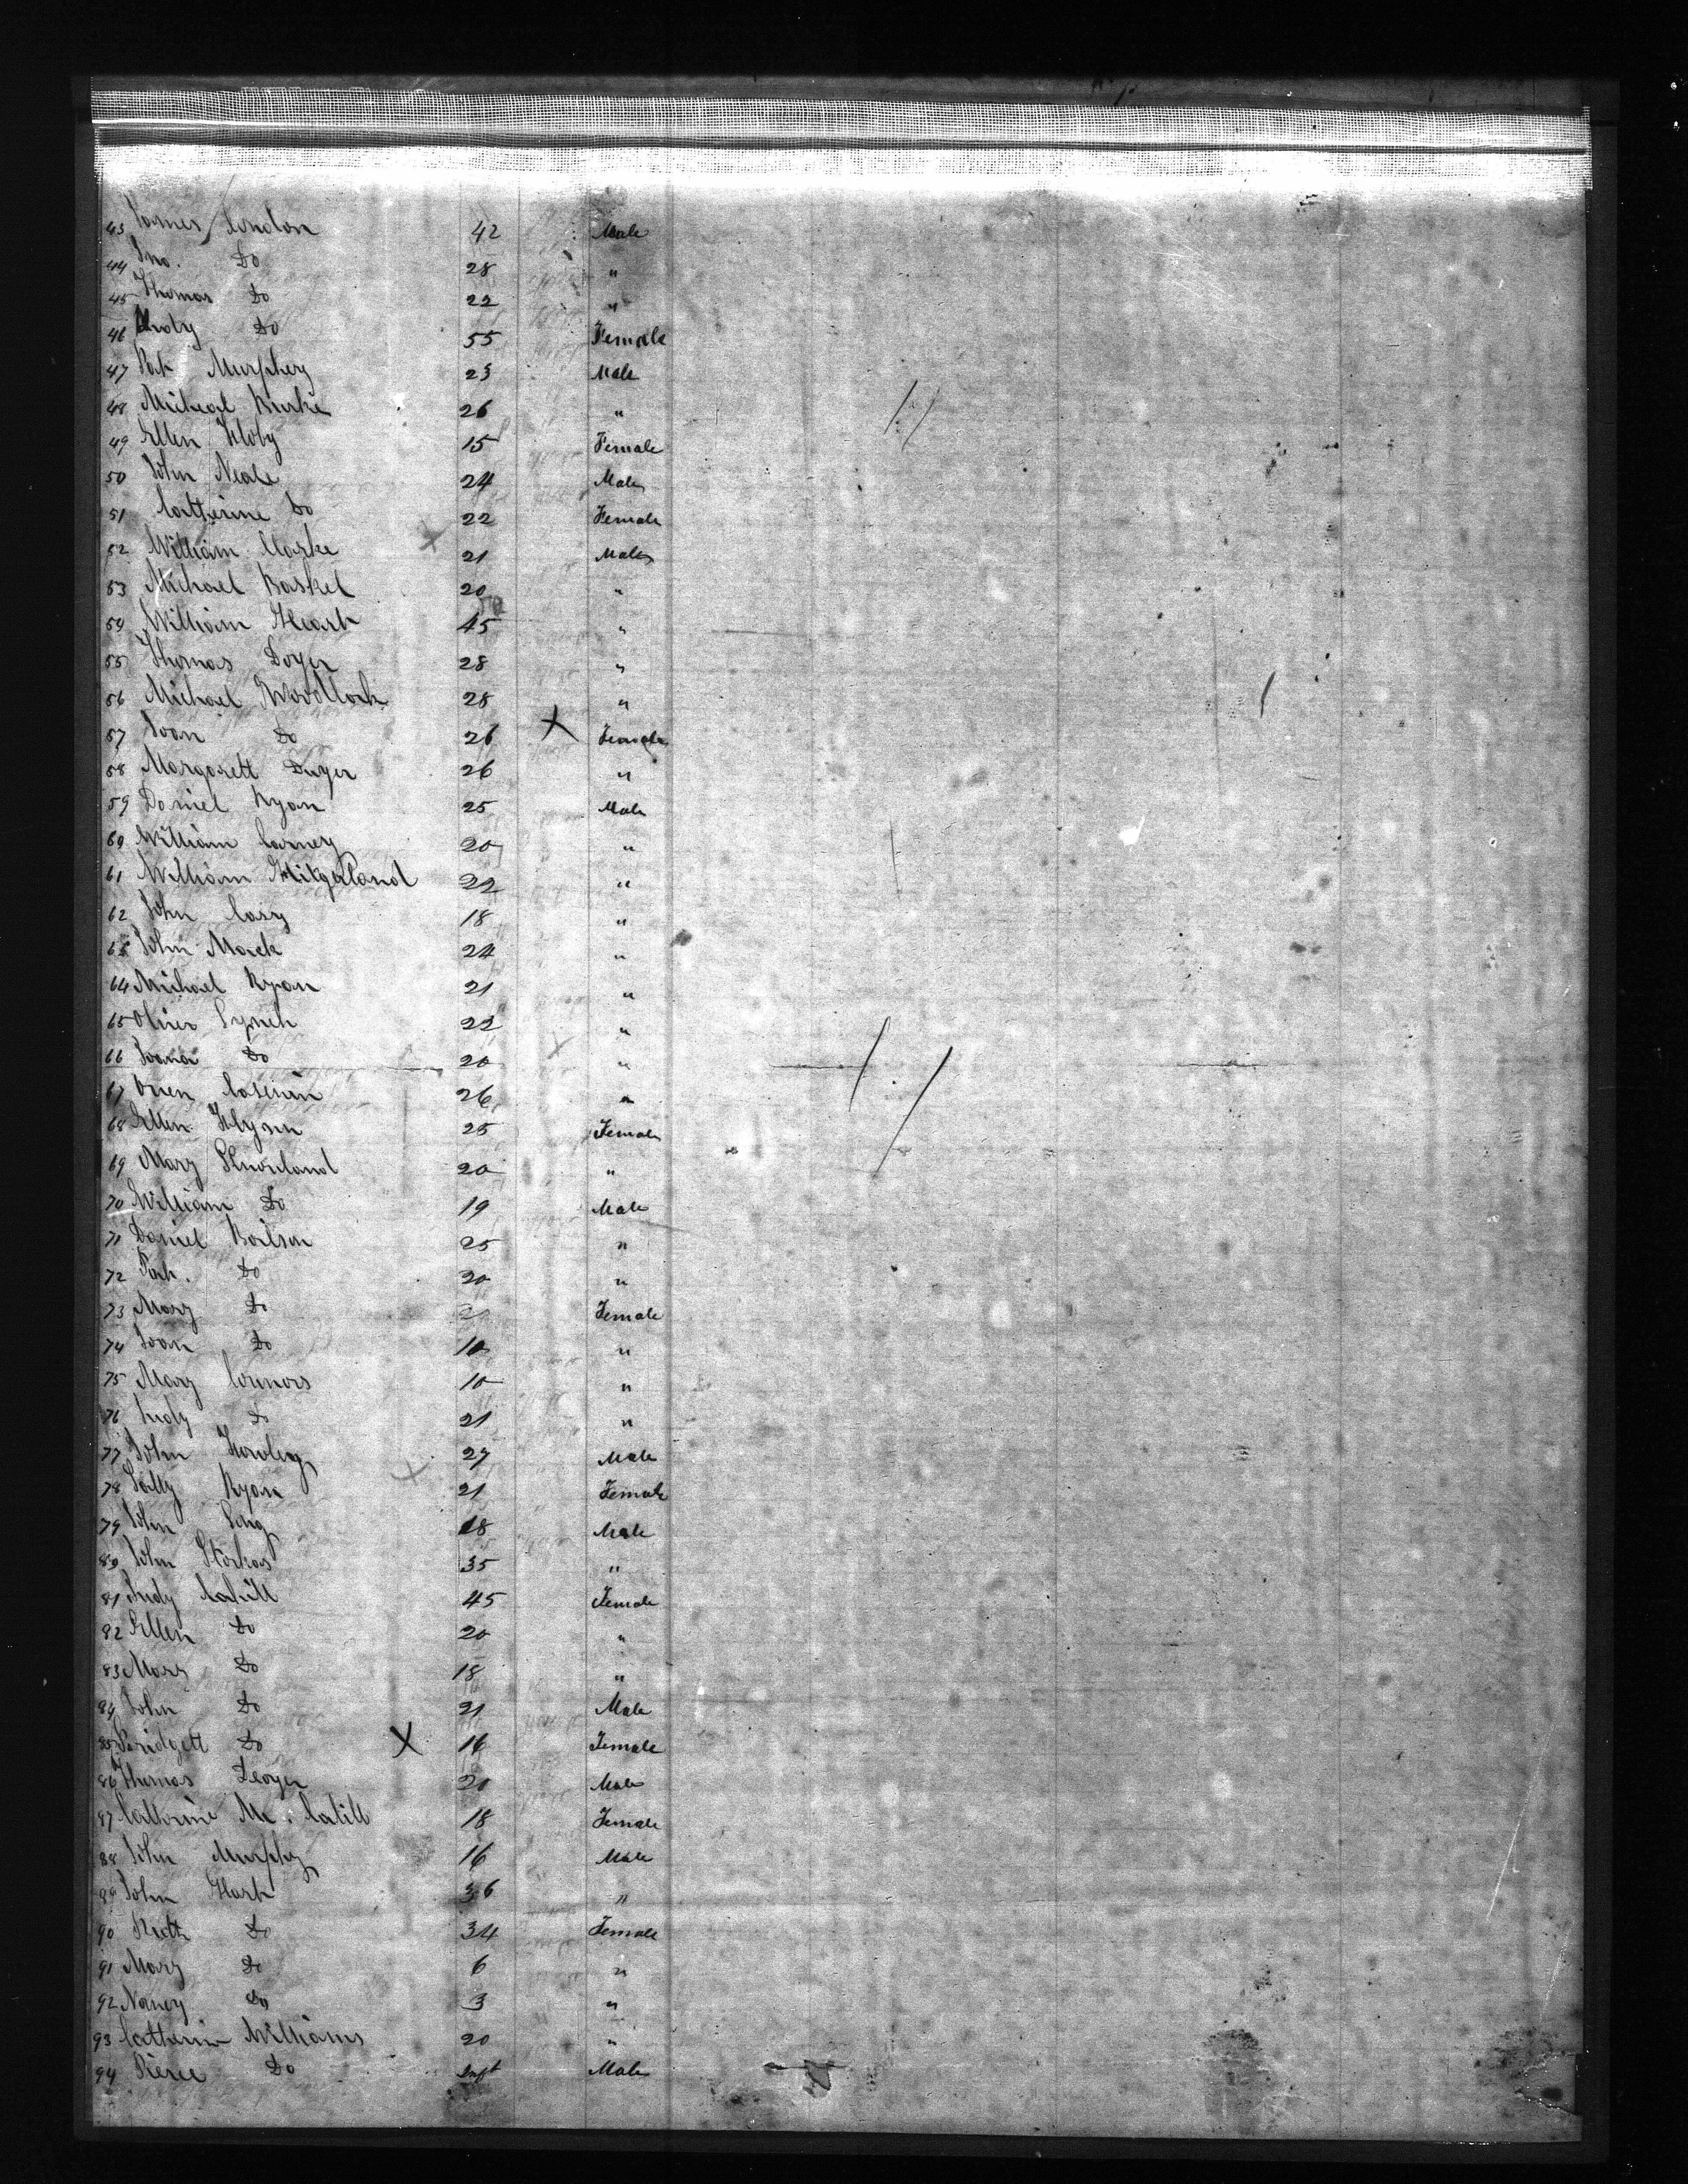 43 James London 42 Male
44 Jno. Do 28 "
45 Thomas Do 22 "
46 Judy Do 55 Female
47 Pat Murphey 23 Male
48 Micheal Burke 26 "
49 Ellen 15 Female
50 John Neale 24 Male
51 Catherine Do 22 Female
52 William Clarke 21 Male
53 Michael Basket 20 "
54 William Heart 45 "
55 Thomas Doyer 28 "
56 Michael Woodlock 28 "
57 Joan Do 26 Female
58 Margarett Dwyer 26 "
59 Daniel Ryan 25 Male
60 William Carney 20 "
61 William Fitzgerland 22 "
62 John Casy 18 "
63 John Mack 24 "
64 Michael Ryan 21 "
65 Oliver Lynch 22 "
66 Do 20 "
67 Owen 26 "
68 Ellen Flynn 25 Female
69 Mary 20 "
70 William Do 19 Male
71 Daniel 25 "
72 Pat. Do 20 "
73 Mary Do Female
74 Joan Do 10 "
75 Mary Connors 10 "
76 Judy Do 21 "
77 John Howley 27 Male
78 Sally Ryan 21 Female
79 John 18 Male
80 John 35 "
81 Judy Cahill 45 Female
82 Ellen Do 20 "
83 Mary Do 18 "
84 John Do 21 Male
85 Bridgett Do 16 Female
86 Thomas 20 Male
87 Catherine Mc. Cahill 18 Female
88 John Murphy 16 Male
89 John Hart 36 "
90 Do 34 Female
91 Mary Do 6 "
92 Nancy Do 3 "
93 Catherin Williams 20 "
94 Pierce Do Inft Male